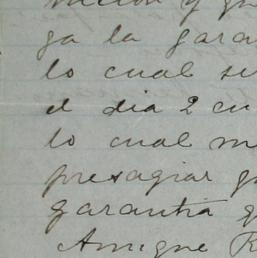 ga la garan
lo cual se
el dia 2 cu
lo cual m
presagiar g
garantia q
Aunque R